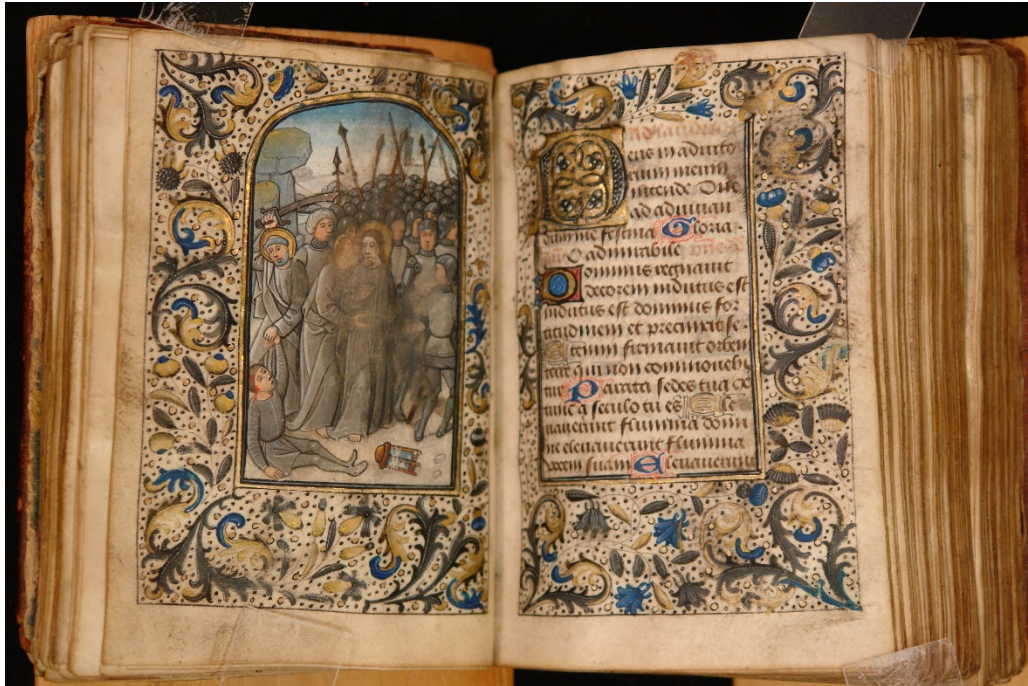 Ad laudes
eus in adiuto
rium meum
intende Dñe
ad adiuuan
dum me festina Gloria
O admirabile
Dominus regnauit
decorem indutus est
indutus est dominus for
titudinem et precinxit se
Etenim firmauit orbem
terre qui non commouebi
tur Parata sedes tua ex
tunc a seculo tu es Ele
uauerunt flumina domi
ne eleuauerunt flumina
uocem suam Eleuauerunt